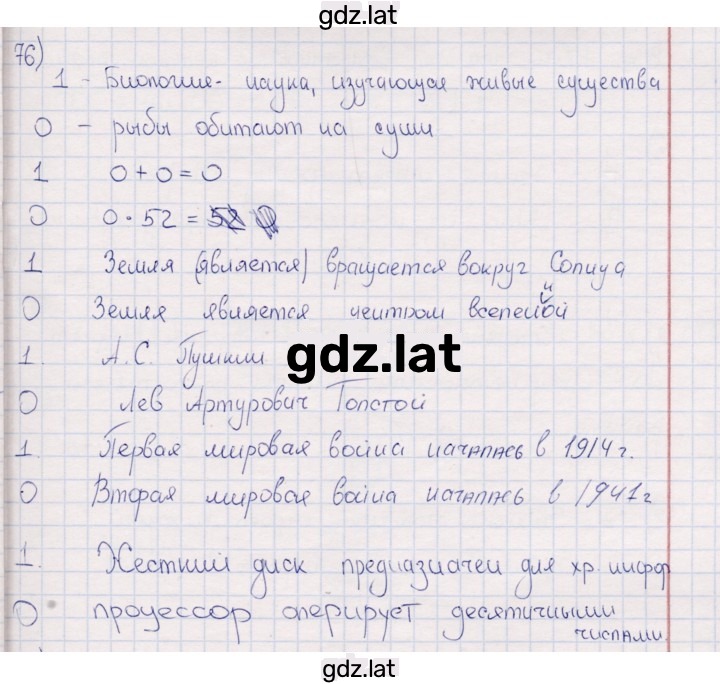 gdz.lat
76)
1 - Биологие - наука, изучающая живые существа
0 - рыбы обитают на суши
1 0+0=0
0 0·52 =
1 Земля (является) вращается вокруг Солнца
0 Земля является центром вселенной
1. А.С. Пушкин
gdz.lat
0 Лев Артурович Толстой
1. Первая мировая война началась в 1914 г.
0 Вторая мировая война началась в 1941 г
1. Жесткий диск предназначен для хр. информ
0 процессор оперирует десятичными
числами.
gdz.lat